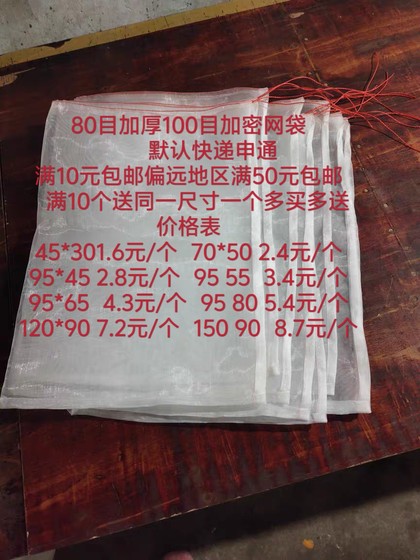 80目加厚100目加密网袋
默认快递申通
满10元包邮偏远地区满50元包邮
满10个送同一尺寸一个多买多送
价格表
45*301.6元/个 70*50 2.4元/个
95*45 2.8元/个 95 55 3.4元/个
95*65 4.3元/个 95 80 5.4元/个
120*90 7.2元/个 150 90 8.7元/个